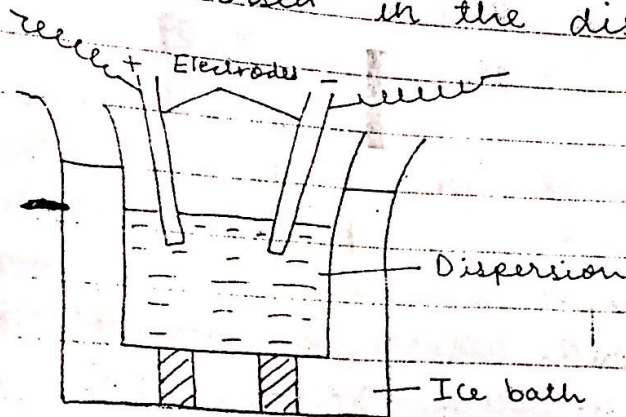 in the dis
+ Electrodes -
Dispersion
Ice bath